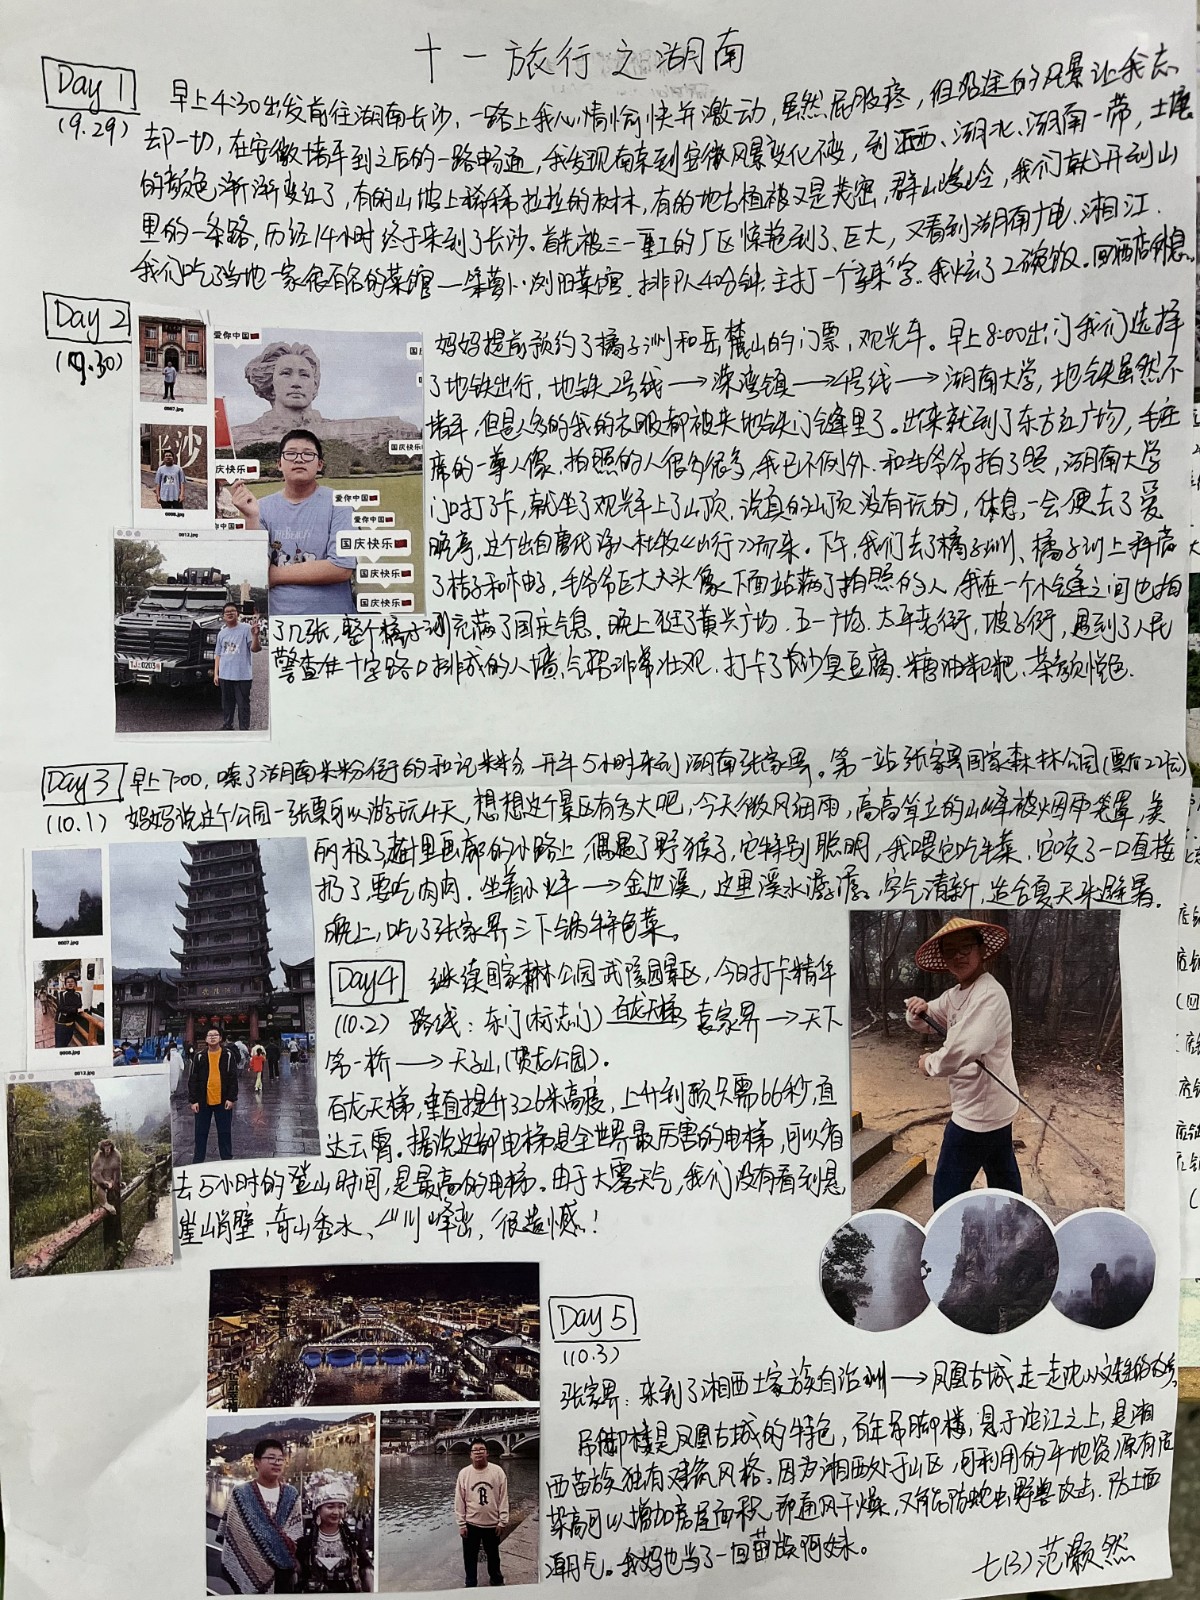 十一旅行之湖南
Day 1
(9.29)
早上4:30出发前往湖南长沙,一路上我心情愉快并激动,虽然屁股疼,但沿途的风景让我忘
却一切,在安徽堵车到之后的一路畅通,我发现南京到安徽风景变化不变,到江西、湖北、湖南一带,土壤
的颜色渐渐变红了,有的山坡上稀稀拉拉的树林,有的地方植被又是茂密,群山峻岭,我们就开到山
里的一条路,历经14小时终于来到了长沙。首先被三一重工的厂区惊艳到了、巨大,又看到湖南广电、湘江.
我们吃了当地一家很有名的菜馆—一朵萝卜·浏阳菜馆.排队40分钟.主打一个"辣"字.我炫了2碗饭.回酒店休息。
Day 2
(9.30)
妈妈提前预约了橘子洲和岳麓山的门票,观光车。早上8:00出门我们选择
了地铁出行,地铁2号线→溁湾镇→4号线→湖南大学,地铁虽然不
堵车,但是人多的我的衣服都被夹地铁门缝里了。出来就到了东方红广场,毛主
席的一尊人像,拍照的人很多很多,我也不例外.和毛爷爷拍了照,湖南大学
门口打了卡,就坐了观光车上了山顶.说真的山顶没有玩的,休息,一会便去了爱
晚亭,这个出自唐代诗人杜牧《山行》而来。下午,我们去了橘子洲、橘子洲上种满
了桔子和柚子,毛爷爷巨大大头像下面站满了拍照的人,我在一个小缝之间也拍
了几张,整个橘子洲充满了国庆气息.晚上逛了黄兴广场.五一广场.太平老街,坡子街,遇到了人民
警查在十字路口排成的人墙,气势非常壮观.打卡了长沙臭豆腐.糖油粑粑.茶颜悦色.
爱你中国
国庆快乐
爱你中国
爱你中国
国庆快乐
国庆快乐
国庆快乐
长沙
Day 3
(10.1)
早上7:00,嗦了湖南米粉街的和记米粉.开车5小时来到湖南张家界。第一站张家界国家森林公园(票价227元)
妈妈说这个公园一张票可以游玩4天,想想这个景区有多大吧,今天微风细雨,高高耸立的山峰被烟雨笼罩,美
丽极了.十里画廊的小路上,偶遇了野猴子,它特别聪明,我喂它吃生菜,它咬了一口直接
扔了要吃肉肉.坐着小火车→金边溪,这里溪水潺潺.空气清新,适合夏天来避暑。
晚上,吃了张家界三下锅特色菜。
Day 4
(10.2)
继续国家森林公园武陵园景区,今日打卡精华
路线:东门(标志门) 百龙天梯 袁家界→天下
第一桥→天子山(贺龙公园).
百龙天梯,垂直提升326米高度,上升到顶只需66秒,直
达云霄.据说这部电梯是全世界最厉害的电梯,可以省
去5小时的登山时间,是最高的电梯。由于大雾天气,我们没有看到悬
崖峭壁、奇山秀水、山川峰峦,很遗憾!
Day 5
(10.3)
张家界:来到了湘西土家族自治州→凤凰古城 走一走沈从文
吊脚楼是凤凰古城的特色,百年吊脚楼,悬于沱江之上,是湘
西苗族独有建筑风格.因为湘西处于山区,可利用的平地资源有
垛高可以增加房屋面积.即通风干燥,又能防蛇虫野兽攻击.防土面
潮气。我妈也当了一回苗族阿妹.
七(3)范灏然